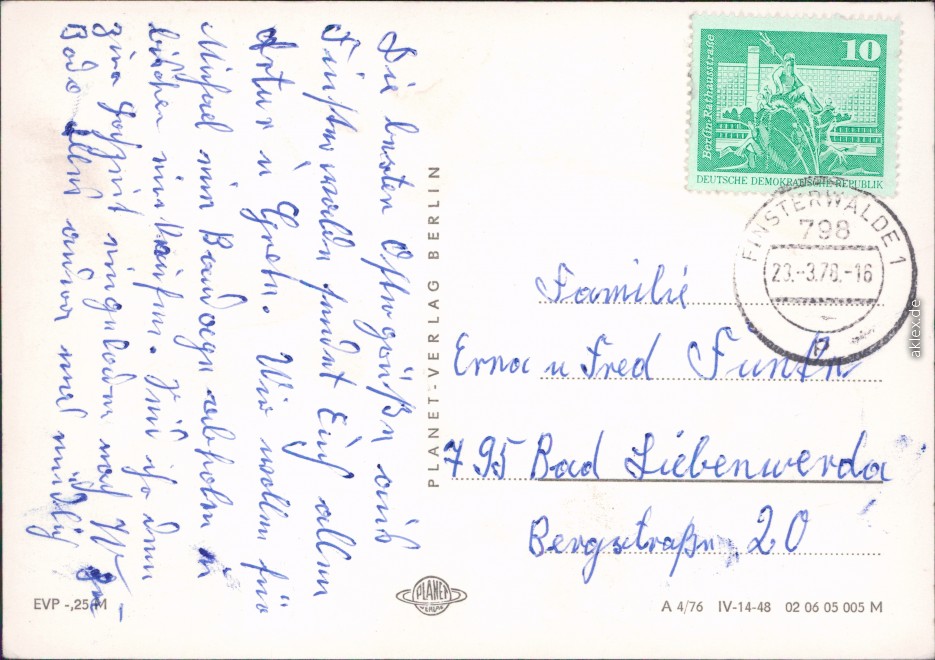 Die besten Ostergrüße aus
Finsterwalde sendet Euch allen
Artur u Grete. Wir wollen für
Michael ein abholen u
bißchen einkaufen.
zur eingeladen nach
Bado alles andere mündlich
PLANET-VERLAG BERLIN
Berlin-Rathausstraße
10
DEUTSCHE DEMOKRATISCHE REPUBLIK
FINSTERWALDE 1
798
23.-3.78.-16
Familie
Erna u Fred Funke
795 Bad Liebenwerda
Bergstraße 20
EVP -,25 M
PLANET
VERLAG
A 4/76 IV-14-48 02 06 05 005 M
aklex.de